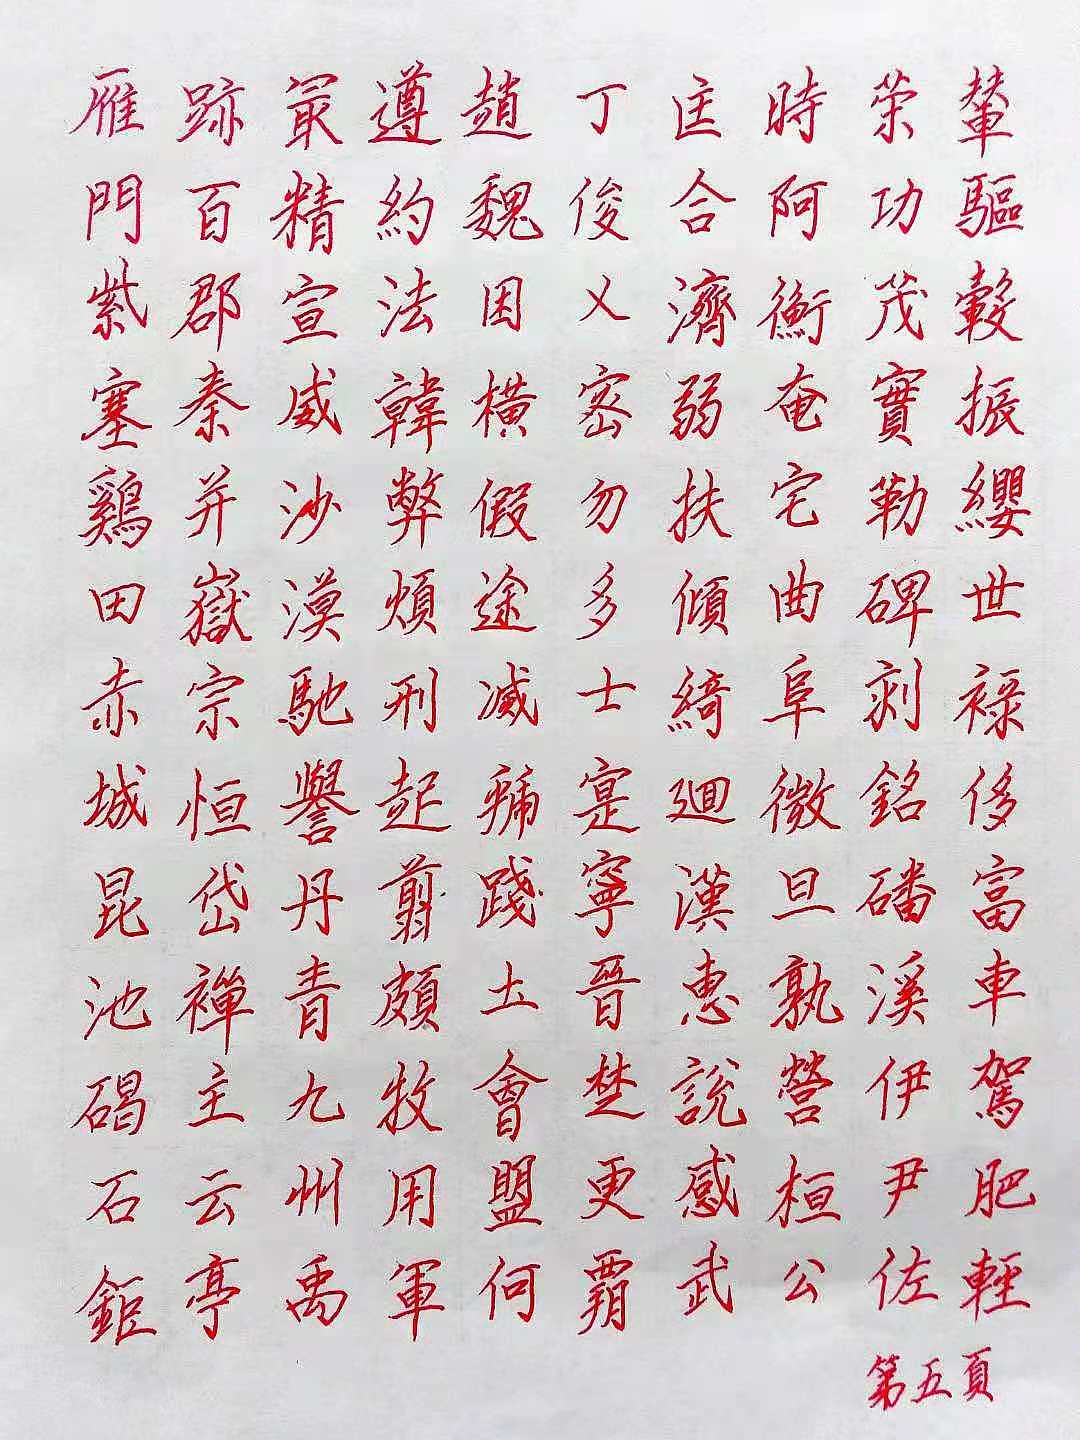 輦驅轂振纓世祿侈富車駕肥輕
榮功茂實勒碑刻銘磻溪伊尹佐
時阿衡奄宅曲阜微旦孰營桓公
匡合濟弱扶傾綺迴漢惠說感武
丁俊乂密勿多士寔寧晉楚更霸
趙魏困橫假途滅虢踐土會盟何
遵約法韓弊煩刑起翦頗牧用軍
最精宣威沙漠馳譽丹青九州禹
跡百郡秦并嶽宗恒岱禪主云亭
雁門紫塞鷄田赤城昆池碣石鉅
第五頁